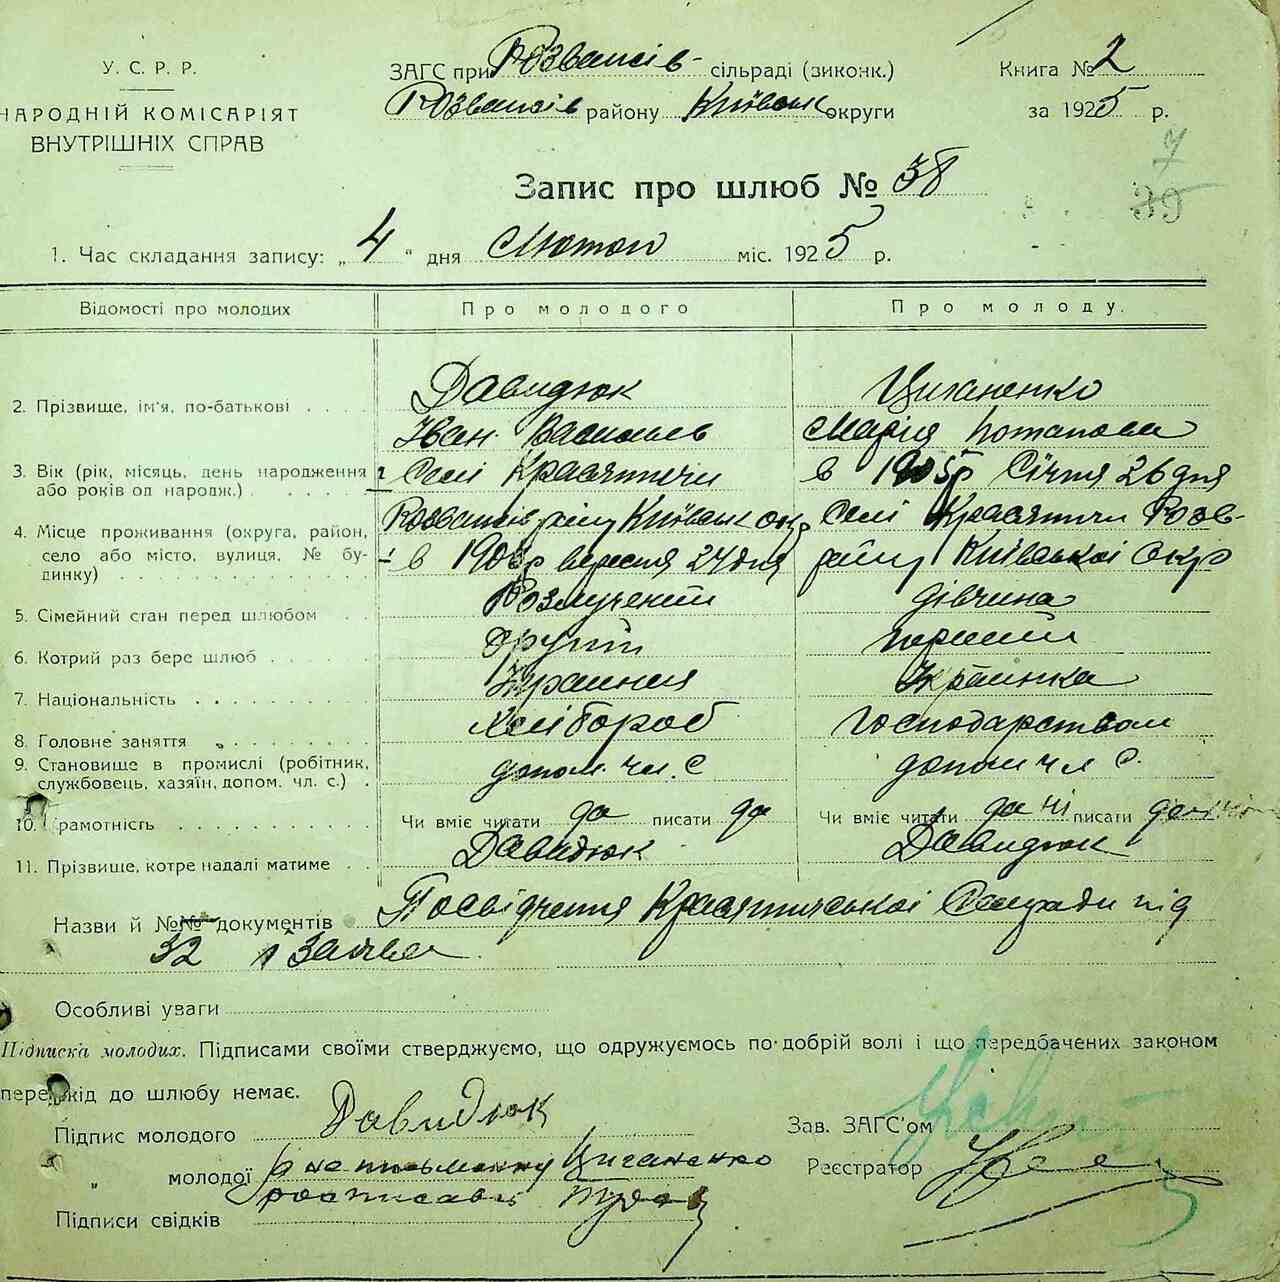 У. С. Р. Р.
НАРОДНІЙ КОМІСАРІЯТ
ВНУТРІШНІХ СПРАВ
ЗАГС при Розважів- сільраді (виконк.)
Розважів району Київськ округи
Книга № 2
за 1925 р.
7
39
Запис про шлюб № 38
1. Час складання запису: „ 4 “ дня Лютого міс. 1925 р.
Відомості про молодих
Про молодого
Про молоду.
2. Прізвище, ім'я, по-батькові
Давидюк
Циганенко
Іван Василь
Марія Потапова
3. Вік (рік, місяць, день народження або років од народж.)
Селі Красятичи
в 1905р Січня 26 дня
4. Місце проживання (округа, район, село або місто, вулиця, № будинку)
Розважів району Київськ окр
Селі Красятичи Розв-
в вересня 24 дня
району Київської Окр
5. Сімейний стан перед шлюбом
Розлучений
дівчина
6. Котрий раз бере шлюб
Другий
перший
7. Національність
Українка
8. Головне заняття
Хлібороб
господарством
9. Становище в промислі (робітник, службовець, хазяїн, допом. чл. с.)
допом. чл. С
допом чл С.
10. Грамотність
Чи вміє читати да писати да
Чи вміє читати да ні писати
11. Прізвище, котре надалі матиме
Давидюк
Давидюк
Назви й №№ документів Посвідчення Красятичської Сельради під
32 і Заява
Особливі уваги
Підписка молодих. Підписами своїми стверджуємо, що одружуємось по добрій волі і що передбачених законом
перешкід до шлюбу немає.
Підпис молодого Давидюк
Зав. ЗАГС'ом
„ молодої Циганенко
Реєстратор
росписався
Підписи свідків